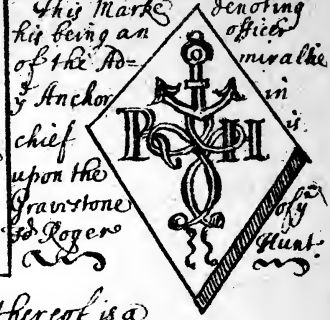 This Marke denoting
his being an officer
of the Ad= miraltie
ye Anchor in
chief is
R H
upon the
Gravestone of ye
sd Roger Hunt.
thereof is a